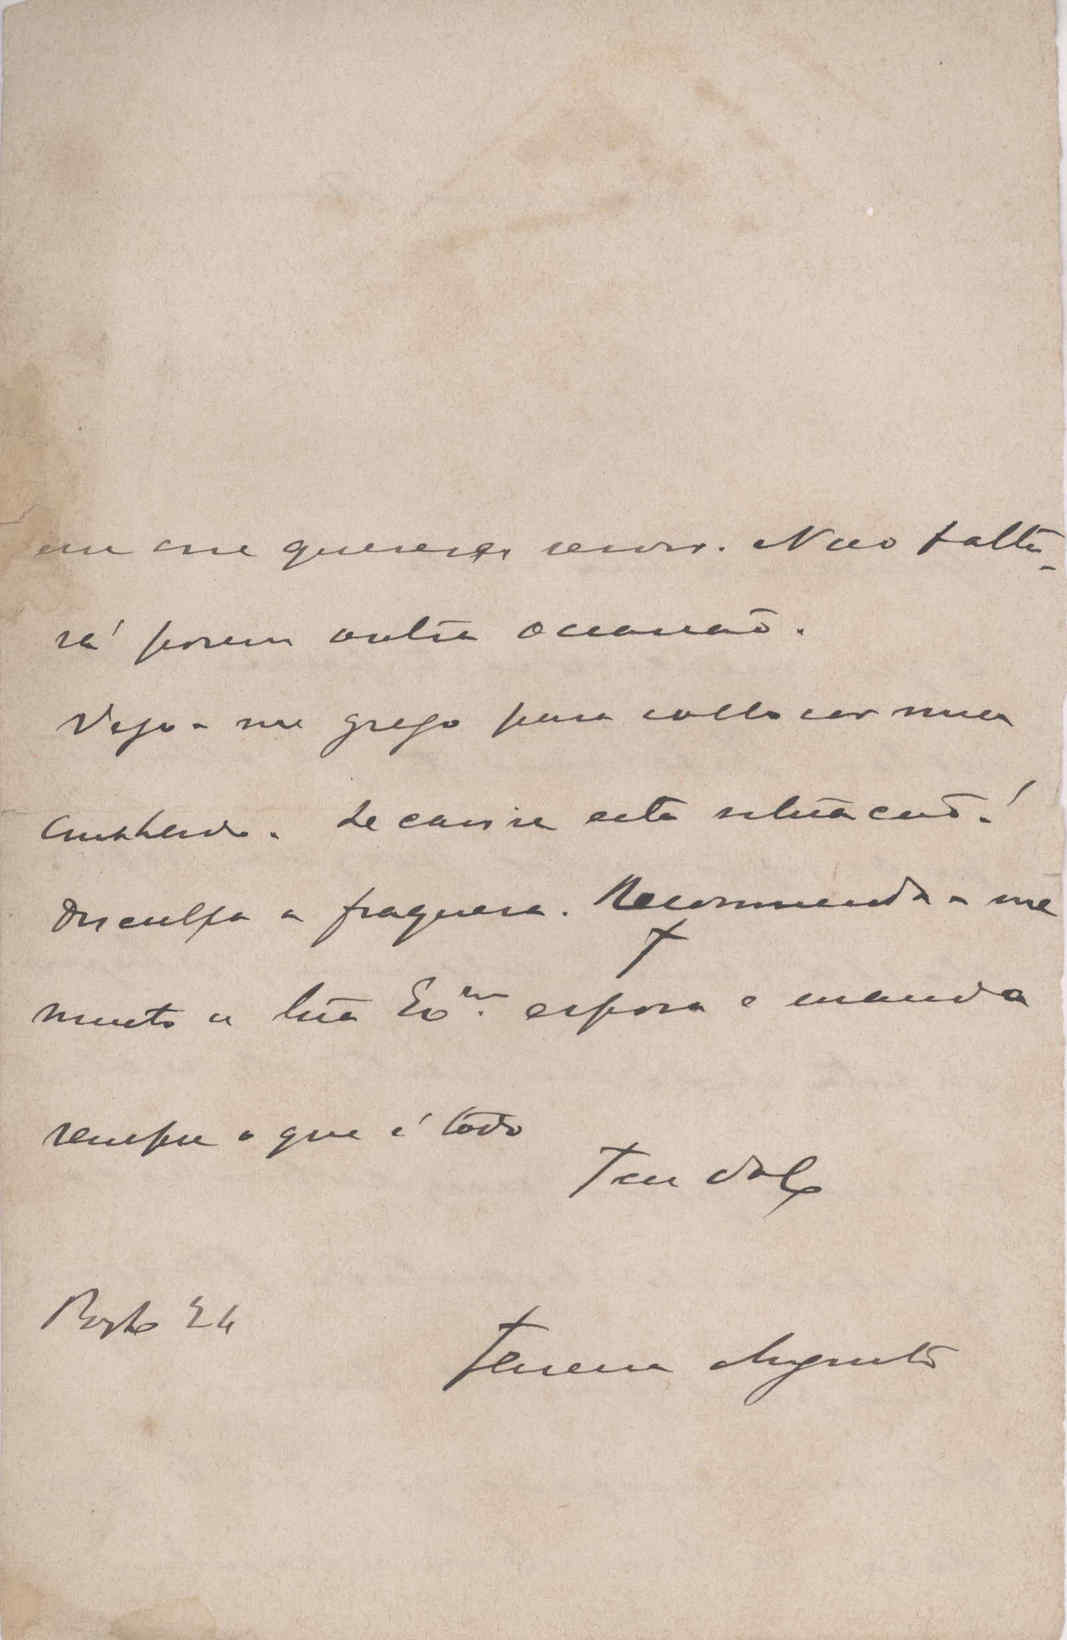 em me quereres servir. Não falta-
rá porem outra occasião.
Vejo-me grego para collocar meu
cunhado. esta situação!
Desculpa a fraqueza. Recommenda-me
muito a tua Exm. esposa e manda
sempre o que é todo
Teu dol
Porto 24
Augusto